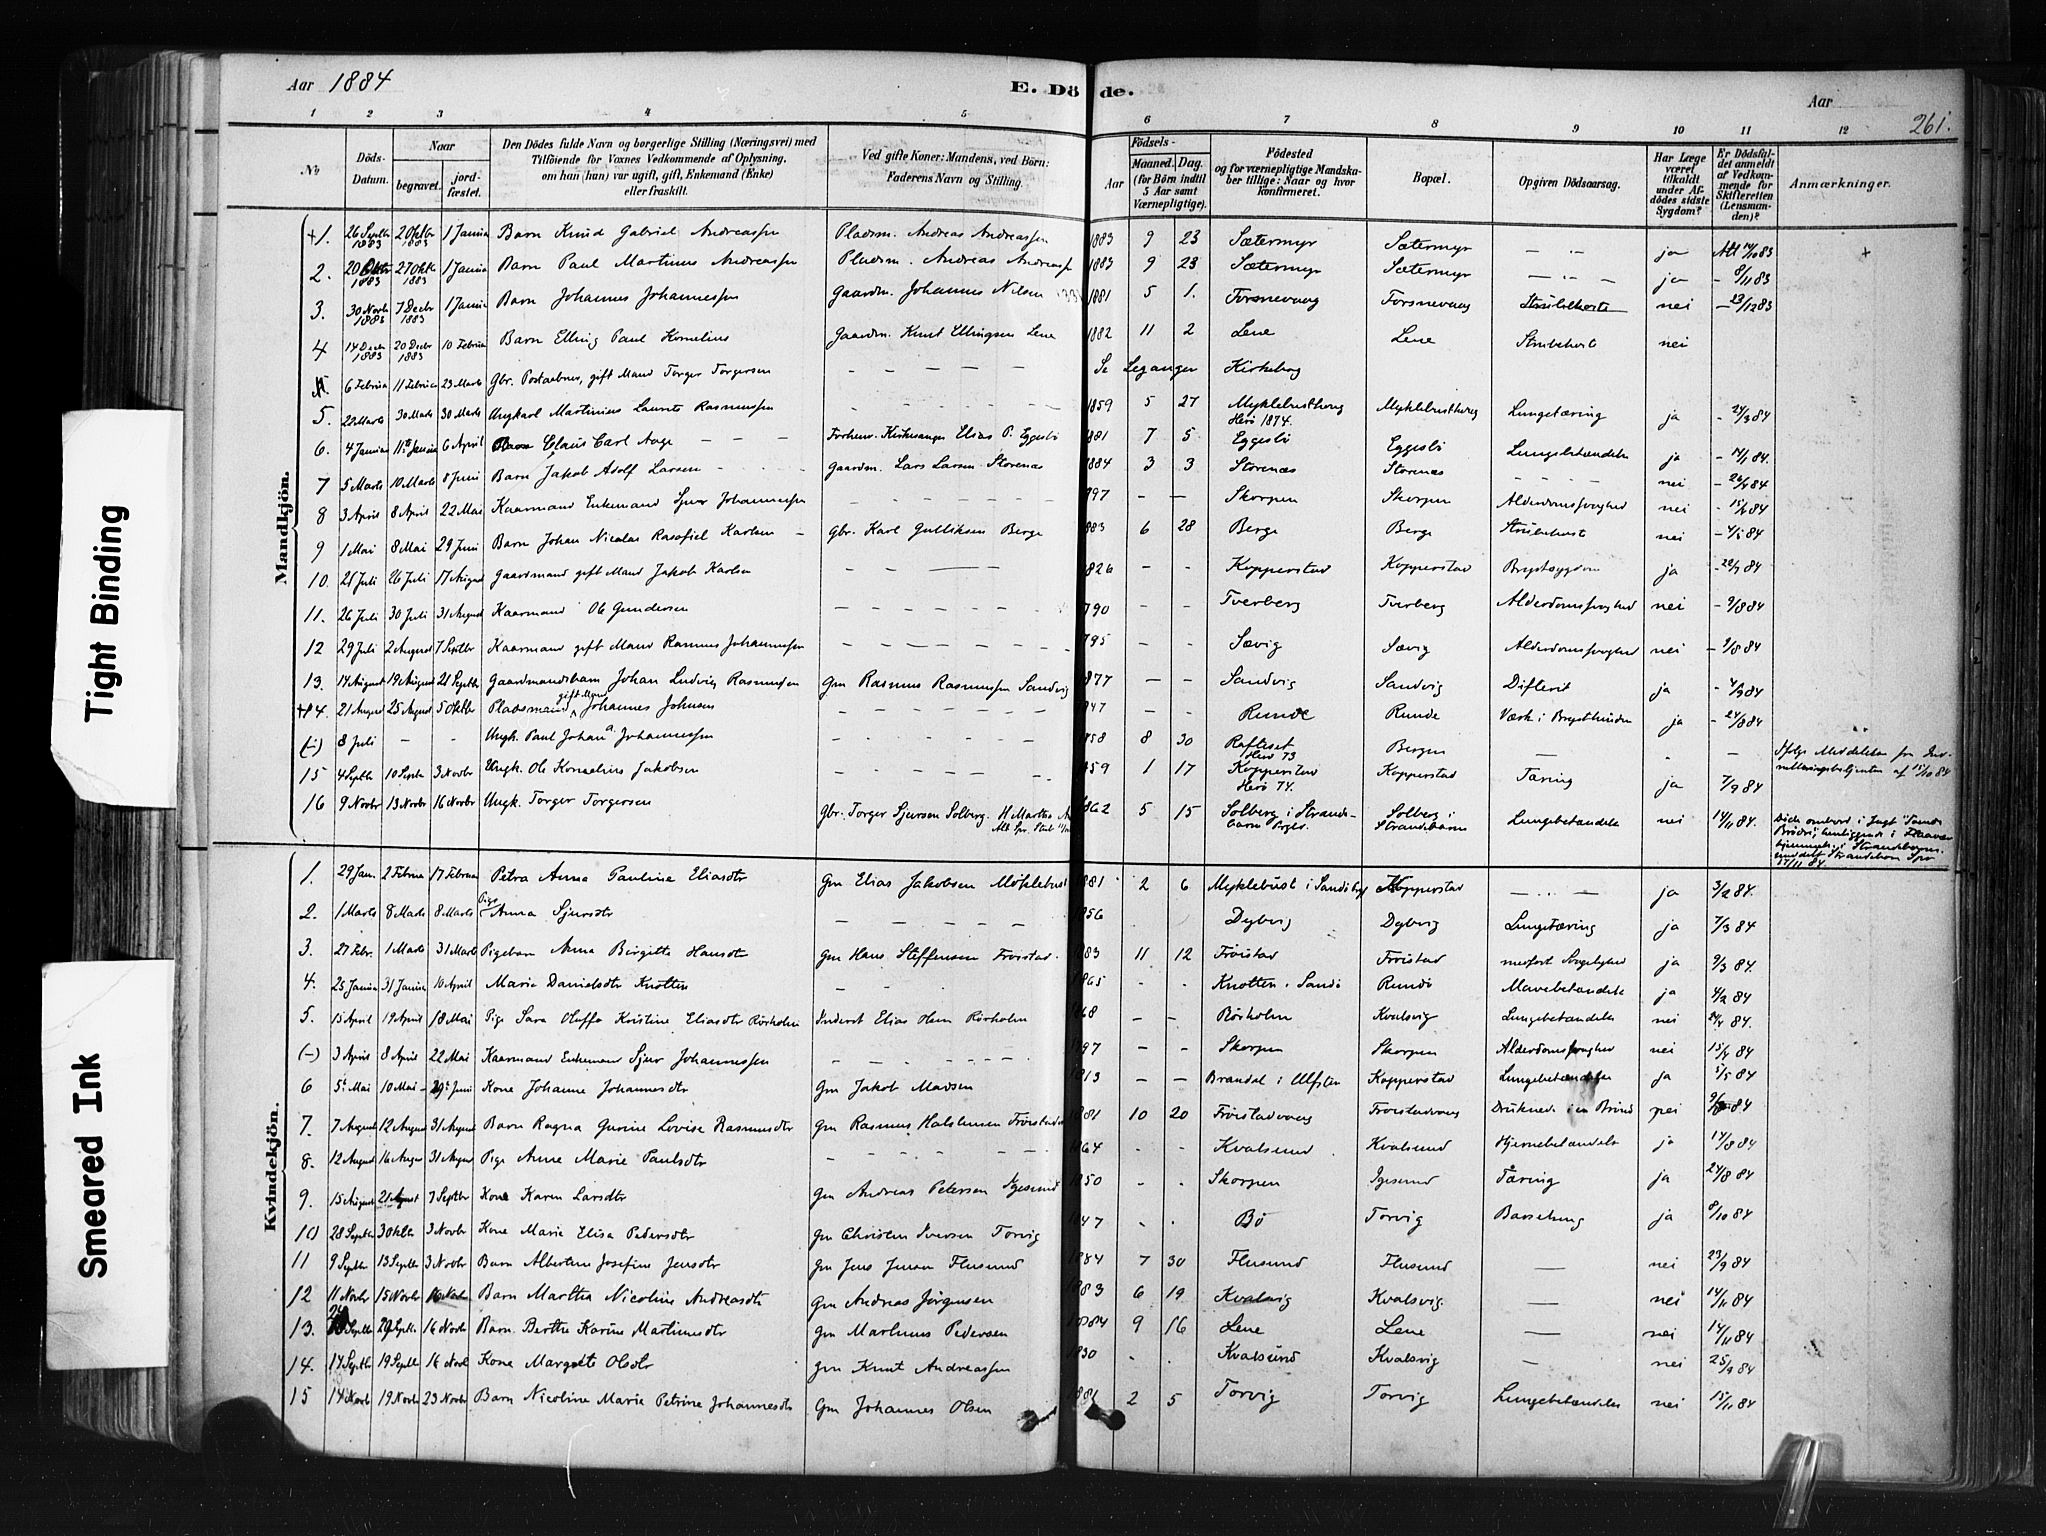 Aar 1884
E. Döde.
Aar
261.
1 2 3 4 5 6 7 8 9 10 11 12
No
Döds-Datum.
Naar
begravet.
jordfæstet.
Den Dödes fulde Navn og borgerlige Stilling (Næringsvei) med
Tilföiende for Voxnes Vedkommende af Oplysning,
om han (hun) var ugift, gift, Enkemand (Enke)
eller fraskilt.
Ved gifte Koner: Mandens, ved Börn:
Faderens Navn og Stilling.
Födsels-
Aar
Maaned.
Dag.
(for Börn indtil
5 Aar samt
Værnepligtige).
Födested
og for værnepligtige Mandska-
ber tillige: Naar og hvor
konfirmeret.
Bopæl.
Opgiven Dödsaarsag.
Har Læge
været
tilkaldt
under Af-
dödes sidste
Sygdom?
Er Dödsfal-
det anmeldt
af Vedkom-
mende for
Skifteretten
(Lensman-
den)?
Anmærkninger.
Mandkjön.
+1. 26 Septbr 1883 2 Oktbr 1883 1 Januar Barn Knud Gabriel Andreassen Pladsm. Andreas Andreassen 1883 9 23 Sætermyr Sætermyr — ja Att 14/10 83 +
2. 20 Oktbr 1883 27 Oktb 1883 1 Januar Barn Paul Martinus Andreassen Pladsm. Andreas Andreass 1883 9 23 Sætermyr Sætermyr — ja - 8/11 83
3. 30 Novbr 1883 7 Decbr 1883 1 Januar Barn Johannes Johannessen Gaardm. Johannes Nilsen 1881 5 1. Torsnevaag Torsnevaag Strubehoste nei - 23/12 83
4 14 Decbr 1883 20 Decbr 1883 10 Februar Barn Elling Paul Kornelius Gaardm. Knut Ellingsen Lene 1882 11 2 Lene Lene Strubehost nei
6 Februar 11 Februar 23 Marts Gbr. Postaabner, gift Mand Torger Torgersen — Se Leganger Kirkebog
5. 22 Marts 30 Marts 30 Marts Ungkarl Martinius Laurits Rasmussen — 1859 5 27 Myklebusthaug Herö 1874. Myklebusthaug Lungetæring ja - 24/3 84
6. 4 Januar 11te Januar 6 April Barn Claus Carl Aage — Forhenv. Kirkesanger Elias P. Eggesbö 881 7 5 Eggesbö Eggesbö Lungebetændelse ja - 14/1 84.
7 5 Marts 10 Marts 8 Juni Barn Jakob Adolf Larsen — Gaardm. Lars Larsen Storenæs 1884 3 3 Storenæs Storenæs — nei - 26/4 84
8 3 April 8 April 22 Mai Kaarmand Enkemand Sjur Johannessen — 797 — — Skorpen Skorpen Alderdomssvaghed nei - 15/4 84
9 1 Mai 8 Mai 29 Juni Barn Johan Nicolai Rasafiel Karlsen — Gbr. Karl Gulliksen Berge 883 6 28 Berge Berge Strubehost nei - 4/5 84
10. 25 Juli 26 Juli 17 August Gaardmand gift Mand Jakob Karlsen — 826 - - Kopperstad Kopperstad Brystsygdom ja - 28/7 84
11. 26 Juli 30 Juli 31 August Kaarmand Ole Gundersen — 790 - - Tverberg Tverberg Alderdomssvaghed nei - 9/8 84
12 29 Juli 2 August 7 Septbr Kaarmand gift Mand Rasmus Johannessen — 795 — — Sævig Sævig Alderdomssvaghed nei - 9/8 84
13. 14 August 19 August 21 Septbr Gaardmandsbarn Johan Ludvig Rasmussen Gm Rasmus Rasmussen Sandvig 1877 — — Sandvig Sandvig Difterit ja - 4/9 84
+14. 21 August 25 August 5 Oktbr Pladsmand gift Mand Johannes Johnsen — 1847 — - Runde Runde Værk i Brysthinden ja - 24/8 84
(-) 8 Juli - - Ungk. Paul Johan Johannessen 1858 8 30 Rafteset Herö 73 Bergen — — Ifølge Meddelelse fra Indrulleringsbetjenten af 15/10 84
15 4 Septbr 10 Septbr 3 Novbr Ungk. Ole Kornelius Jakobsen — 1859 1 17 Kopperstad Herö 74. Kopperstad Tæring ja 7/9 84
16 9 Novbr 13 Novbr 16 Novbr Ungk. Torger Torgersen Gbr. Torger Sjursen Solberg. 1862 5 15 Solberg i Strandebarn Prgld. Solberg i Strandebarn Lungebetændelse nei 14/11 84. Døde ombord i Jagt
Kvindekjön.
1. 29 Jan. 2 Februar 17 Februar Petra Anna Pauline Eliasdtr Gm Elias Jakobsen Möklebust 1881 2 6 Myklebust i Sandö Kopperstad — ja 3/2 84.
2. 1 Marts 8 Marts 8 Marts Pige Anna Sjursdtr — 1856 Dybvig Dybvig Lungetæring ja 7/3 84
3. 27 Febr. 1 Marts 31 Marts Pigebarn Anna Birgitte Hansdtr Gm Hans Steffensen Fröistad. 1883 11 12 Fröistad Fröistad medfødt Svaghed ja 9/3 84.
4. 25 Januar 31 Januar 10 April Marie Danielsdtr Knotten — 1865 - - Knotten i Sandö Rundö Mavebetændelse ja 4/2 84
5. 15 April 19 April 18 Mai Pige Sara Oluffa Kristine Eliasdtr Rörholm Inderst Elias Hans Rörholm 1868 — — Rörholm Kvalsvig Lungebetændelse nei 24/4 84.
(-) 3 April 8 April 22 Mai Kaarmand Enkemand Sjur Johannessen — 1797 — - Skorpen Skorpen Alderdomssvaghed nei 15/4 84
6 5t Mai 10 Mai 29t Juni Kone Johanne Johannesdtr Gm Jakob Madsen 1813 — — Brandal i Ulfsten Kopperstad Lungebetændelse ja 5/5 84
7. 7 August 12 August 31 August Barn Ragna Gurine Lovise Rasmusdtr Gm Rasmus Halstensen Fröistad 1881 10 20 Fröistadvaag Fröistadvaag Druknede i en Brönd nei 9/8 84
8. 12 August 16 August 31 August Pige Anne Marie Paulsdtr — 1864 - - Kvalsund Kvalsund Hjernebetændelse ja 14/8 84
9. 15 August 21 August 7 Septbr Kone Karen Larsdtr Gm Andreas Petersen Igesund 1850 - - Skorpen Igesund Tæring ja 24/8 84
10 28 Septbr 3 Oktbr 3 Novbr Kone Marie Elisa Pedersdtr Gm Christen Iversen Torvig 1847 - - Bö Torvig Barselseng ja 8/10 84
11 9 Septbr 13 Septbr 3 Novbr Barn Albertine Josefine Jensdtr Gm Jens Jensen Flusund 1884 7 30 Flusund Flusund — nei 23/9 84
12 11 Novbr 15 Novbr 16 Novbr Barn Martha Nicoline Andreasdtr Gm Andreas Jörgensen 1883 6 19 Kvalsvig Kvalsvig. — nei 14/11 84
13. Septbr 29 Septbr 16 Novbr Barn Berthe Karine Martinusdtr Gm Martinus Pedersen 1884 9 16 Lene Lene — nei 14/11 84
14. 14 Septbr 19 Septbr 16 Novb Kone Margrete Olsdtr Gm Knut Andreassen 1830 - - Kvalsund Kvalsvig — nei 25/9 84
15 14 Novbr 19 Novbr 23 Novbr Barn Nicoline Marie Petrine Johannesdtr Gm Johannes Olsen 1881 2 5 Torvig Torvig Lungebetændelse nei 15/11 84
Tight Binding
Smeared Ink